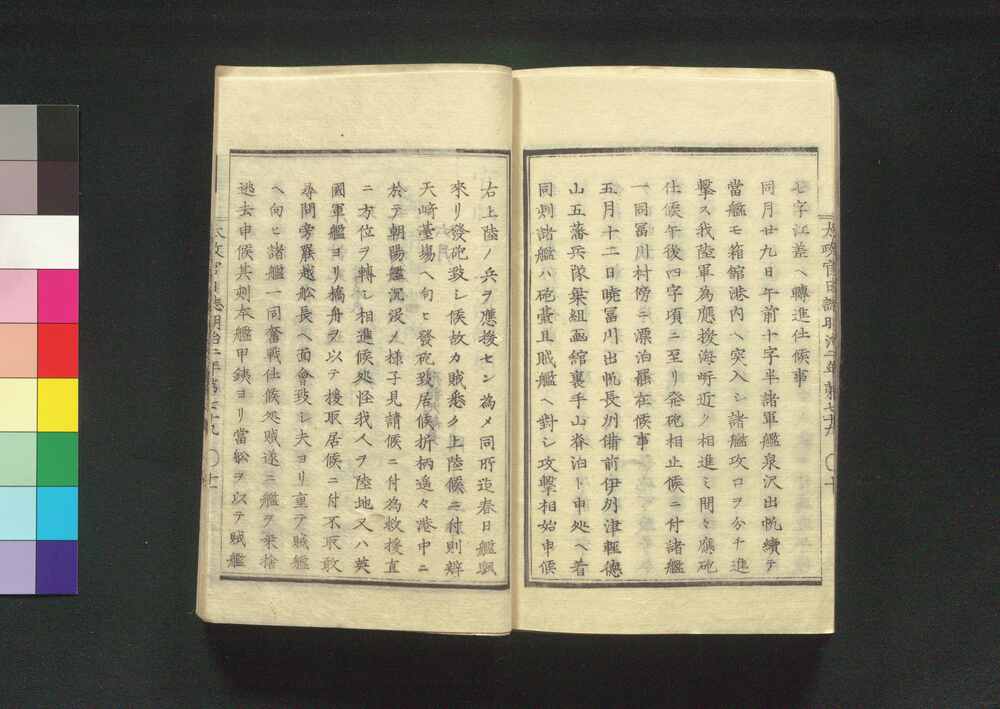 七字江差ヘ轉進仕候事
同月廿九日午前十字半諸軍艦泉沢出帆續テ
當艦モ箱館港内ヘ突入シ諸艦攻口ヲ分チ進
撃ス我陸軍為應援海岸近ク相進ミ間々應砲
仕候午後四字頃ニ至リ発砲相止候ニ付諸艦
一同冨川村傍ニ漂泊罷在候事
五月十二日暁冨川出帆長州備前伊州津軽徳
山五藩兵隊乗組画舘裏手山脊泊ト申処ヘ着
同刻諸艦ハ砲臺且賊艦ヘ對シ攻撃相始申候
太政官日誌明治二年第七十九 〇十
右上陸ノ兵ヲ應援センカ為メ同所迄春日艦颿
來リ發砲致シ候故カ賊悉ク上陸候ニ付則辨
天崎臺場ヘ向ヒ發砲致居候折柄遙々港中ニ
於テ朝陽艦沉没ノ様子見請候ニ付為救援直
ニ方位ヲ轉シ相進候処怪我人ヲ陸地又ハ英
國軍艦ヨリ橋舟ヲ以テ援取居候ニ付不取敢
尋問旁罷越舩長ヘ面會致シ夫ヨリ重テ賊艦
ヘ向ヒ諸艦一同奮戦仕候処賊遂ニ艦ヲ乗捨
逃去申候其刻本艦甲鉄ヨリ當舩ヲ以テ賊艦
太政官日誌明治二年第七十九 〇十一